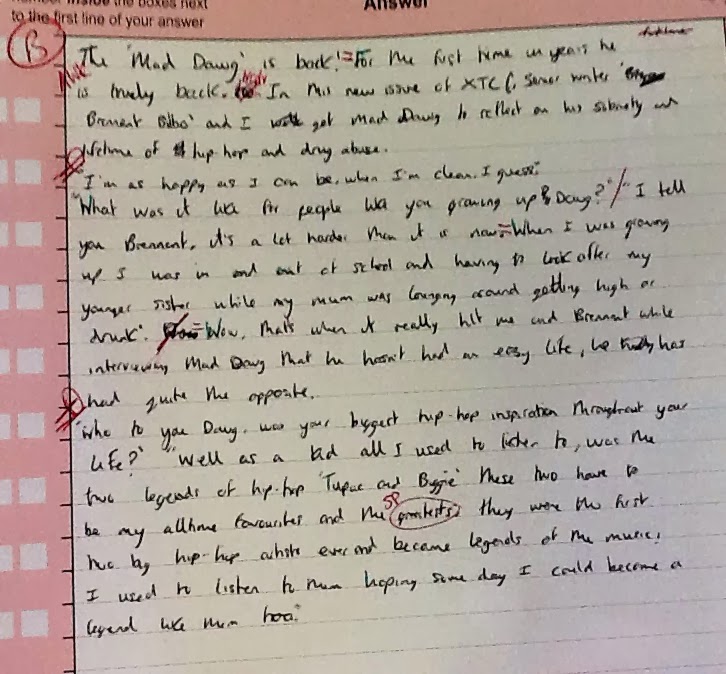 number inside the boxes next
to the first line of your answer
Answer
B
The 'Mad Dawg' is back! = For the first time in years he
is truely back. In this new issue of XTC, Senor writer
Brennent Bilbo' and I got Mad Dawg to reflect on his sobriety and
lifetime
lifetime of hip hop and drug abuse.
"I'm as happy as I can be, when I'm clean, I guess."
"What was it like for people like you growing up Dawg?" / "I tell
you Brennent, it's a lot harder then it is now = When I was growing
up I was in and out of school and having to look after my
younger sister while my mum was lounging around getting high or
drunk". Wow, thats when it really hit me and Brennent while
interviewing Mad Dawg that he hasn't had an easy life, he has
had quite the opposite.
"Who to you Dawg, was your biggest hip-hop inspiration throughout your
life?" "Well as a kid all I used to listen to, was the
two legends of hip-hop 'Tupac and Biggie' these two have to
be my alltime favourites and the greatests, they were the first
SP
two big hip-hop artists ever and became legends of the music,
I used to listen to them hoping some day I could become a
legend like them too."